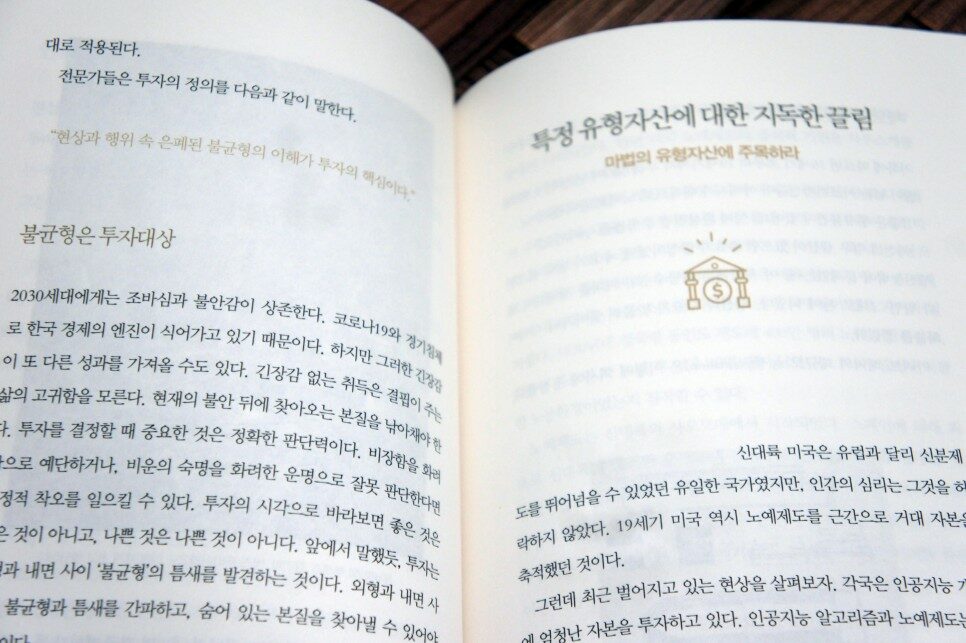 대로 적용된다.
전문가들은 투자의 정의를 다음과 같이 말한다.
“현상과 행위 속 은폐된 불균형의 이해가 투자의 핵심이다.”
불균형은 투자대상
2030세대에게는 조바심과 불안감이 상존한다. 코로나19와 경기침체
로 한국 경제의 엔진이 식어가고 있기 때문이다. 하지만 그러한 긴장감
이 또 다른 성과를 가져올 수도 있다. 긴장감 없는 취득은 결핍이 주는
삶의 고귀함을 모른다. 현재의 불안 뒤에 찾아오는 본질을 낚아채야 한
다. 투자를 결정할 때 중요한 것은 정확한 판단력이다. 비장함을 화려
으로 예단하거나, 비운의 숙명을 화려한 운명으로 잘못 판단한다면
정적 착오를 일으킬 수 있다. 투자의 시각으로 바라보면 좋은 것은
은 것이 아니고, 나쁜 것은 나쁜 것이 아니다. 앞에서 말했듯, 투자는
내면 사이 ‘불균형’의 틈새를 발견하는 것이다. 외형과 내면 사
불균형과 틈새를 간파하고, 숨어 있는 본질을 찾아낼 수 있어야
특정 유형자산에 대한 지독한 끌림
마법의 유형자산에 주목하라
$
신대륙 미국은 유럽과 달리 신분제
도를 뛰어넘을 수 있었던 유일한 국가였지만, 인간의 심리는 그것을 허
락하지 않았다. 19세기 미국 역시 노예제도를 근간으로 거대 자본을
축적했던 것이다.
그런데 최근 벌어지고 있는 현상을 살펴보자. 각국은 인공지능
에 엄청난 자본을 투자하고 있다. 인공지능 알고리즘과 노예제도는